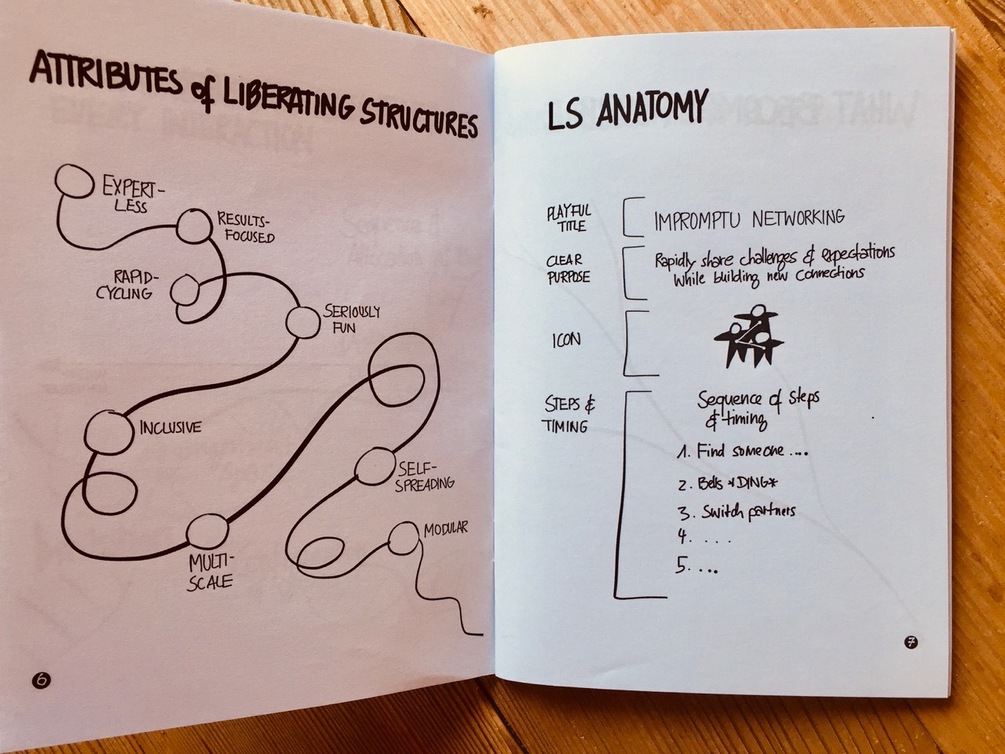 ATTRIBUTES of LIBERATING STRUCTURES
EXPERT-
LESS
RESULTS-
FOCUSED
RAPID-
CYCLING
SERIOUSLY
FUN
INCLUSIVE
MULTI-
SCALE
SELF-
SPREADING
MODULAR
6
LS ANATOMY
PLAYFUL
TITLE
IMPROMPTU NETWORKING
CLEAR
PURPOSE
Rapidly share challenges & expectations
while building new connections
ICON
STEPS &
TIMING
Sequence of steps
& timing
1. Find someone ....
2. Bells *DING*
3. Switch partners
4. . . . .
5. ...
7